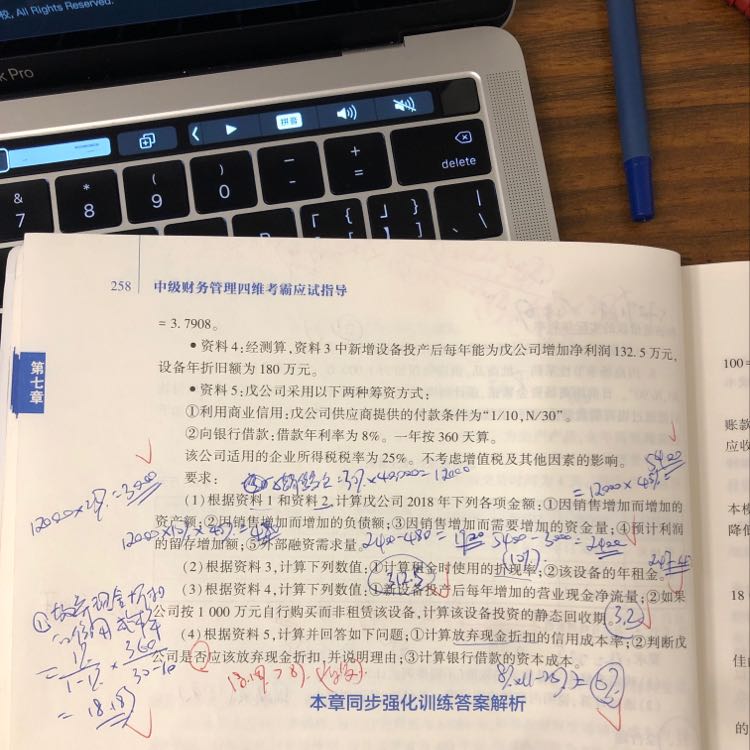 校, All Rights Reserved.
k Pro
拼音
&
7
*
8
(
9
)
0
—
-
+
=
delete
「
{
」
}
|
、
\
258 中级财务管理四维考霸应试指导
第七章
= 3. 7908。
• 资料 4:经测算,资料 3 中新增设备投产后每年能为戊公司增加净利润 132. 5 万元,
设备年折旧额为 180 万元。
• 资料 5:戊公司采用以下两种筹资方式:
①利用商业信用:戊公司供应商提供的付款条件为“1/10,N/30”。
②向银行借款:借款年利率为 8%。一年按 360 天算。
该公司适用的企业所得税税率为 25%。不考虑增值税及其他因素的影响。
要求:
×40000=12000
5400
= 12000×45%=
=3000
(1)根据资料 1 和资料 2,计算戊公司 2018 年下列各项金额:①因销售增加而增加的
资产额;②因销售增加而增加的负债额;③因销售增加而需要增加的资金量;④预计利润
的留存增加额;⑤外部融资需求量。
5400-3000=2400
(10%)
(2)根据资料 3,计算下列数值:①计算租金时使用的折现率;②该设备的年租金。
(3)根据资料 4,计算下列数值:①新设备投产后每年增加的营业现金净流量;②如果
312.5
公司按 1 000 万元自行购买而非租赁该设备,计算该设备投资的静态回收期。
3.2
(4)根据资料 5,计算并回答如下问题:①计算放弃现金折扣的信用成本率;②判断戊
公司是否应该放弃现金折扣,并说明理由;③计算银行借款的资本成本。
①放弃现金折扣
的信用成本率
= 18.18%
8%×(1-25%)=6%
本章同步强化训练答案解析
100=
账款
应收
本模
降低
18
佳
的